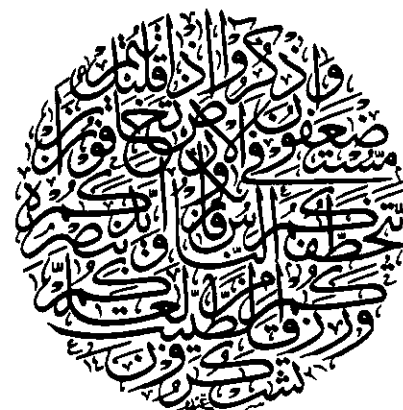 وَاذْكُرُوا إِذْ أَنْتُمْ قَلِيلٌ
مُسْتَضْعَفُونَ فِي الْأَرْضِ تَخَافُونَ أَنْ
يَتَخَطَّفَكُمُ النَّاسُ فَآوَاكُمْ وَأَيَّدَكُمْ بِنَصْرِهِ
وَرَزَقَكُمْ مِنَ الطَّيِّبَاتِ لَعَلَّكُمْ
تَشْكُرُونَ